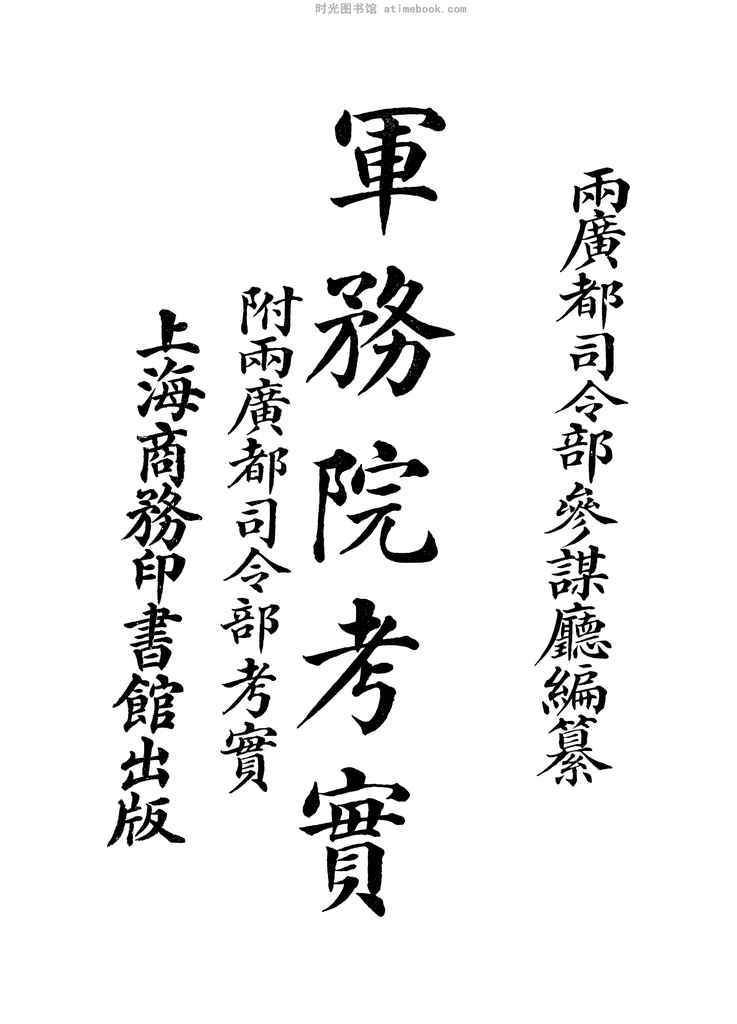 时光图书馆 atimebook.com
兩廣都司令部參謀廳編纂
軍務院考實
附兩廣都司令部考實
上海商務印書館出版